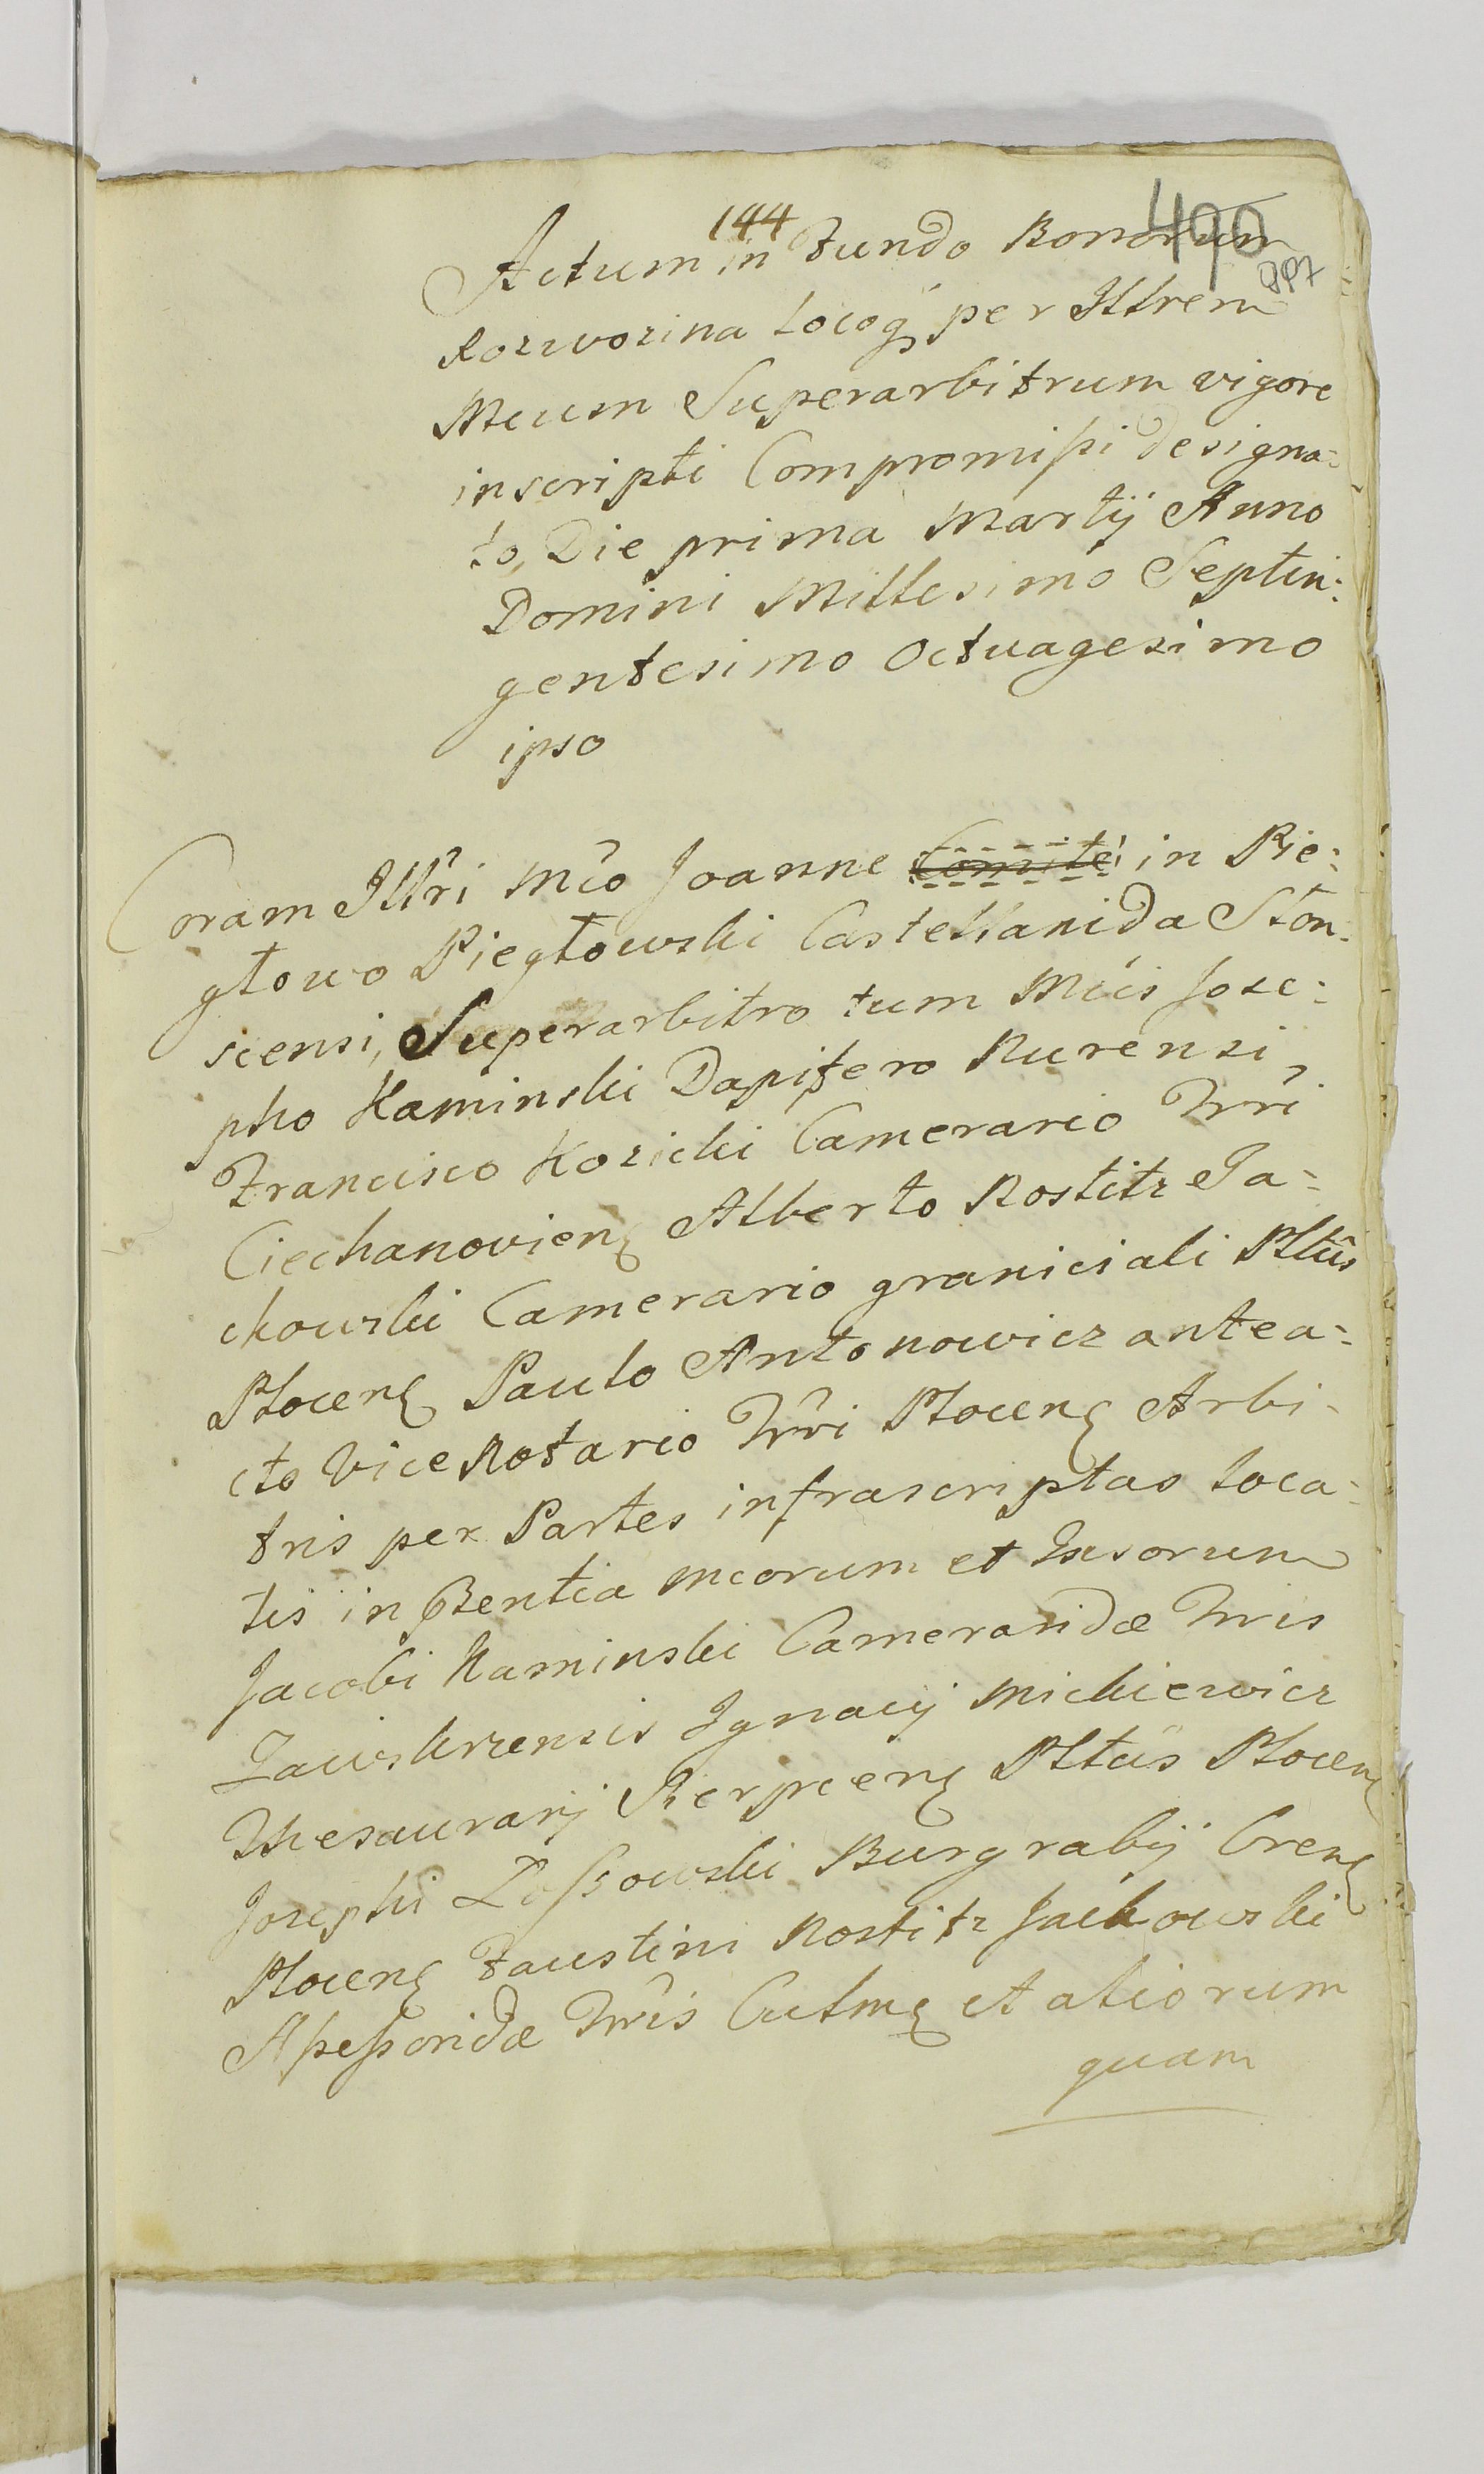 144
490
Actum in Fundo Bonorum
Rozwozina locoq; per Illrem
Mcum Superarbitrum vigore
inscripti Compromissi designa-
to, Die prima Martij Anno
Domini Millesimo Septin-
gentesimo Octuagesimo
ipso
Coram Illri Mco Joanne Comite in Pie-
głowo Piegłowski Castellanida Słon-
scensi, Superarbitro tum Mcis Jose-
pho Kaminski Dapifero Nurensi,
Francisco Kozicki Camerario Trri
Ciechanovien Alberto Nostitz Ja-
ckowski Camerario graniciali Pltus
Plocen Paulo Antonowicz antea-
cto Vice Notario Trri Plocen Arbi-
tris per Partes infrascriptas loca-
tis in Pzentia Mcorum et Gnsorum
Jacobi Kaminski Camerandæ Trris
Zawskrzensis Ignacij Mickiewicz
Thesaurarij Sierpcen Pltus Plocen
Josephi Lossowski Burgrabij Cren
Plocen Faustini Nostitz Jackowski
Assessoridæ Trris Culme et aliorum
quam